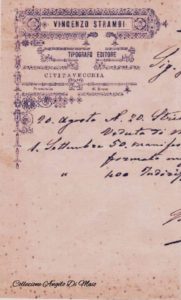 VINCENZO STRAMBI
TIPOGRAFO EDITORE
CIVITAVECCHIA
Sig.
20. Agosto N. 20. Stre
Veduta di
1. Settembre 50. manife
formato
" 400 Indiri
Collezione Angelo Di Maio